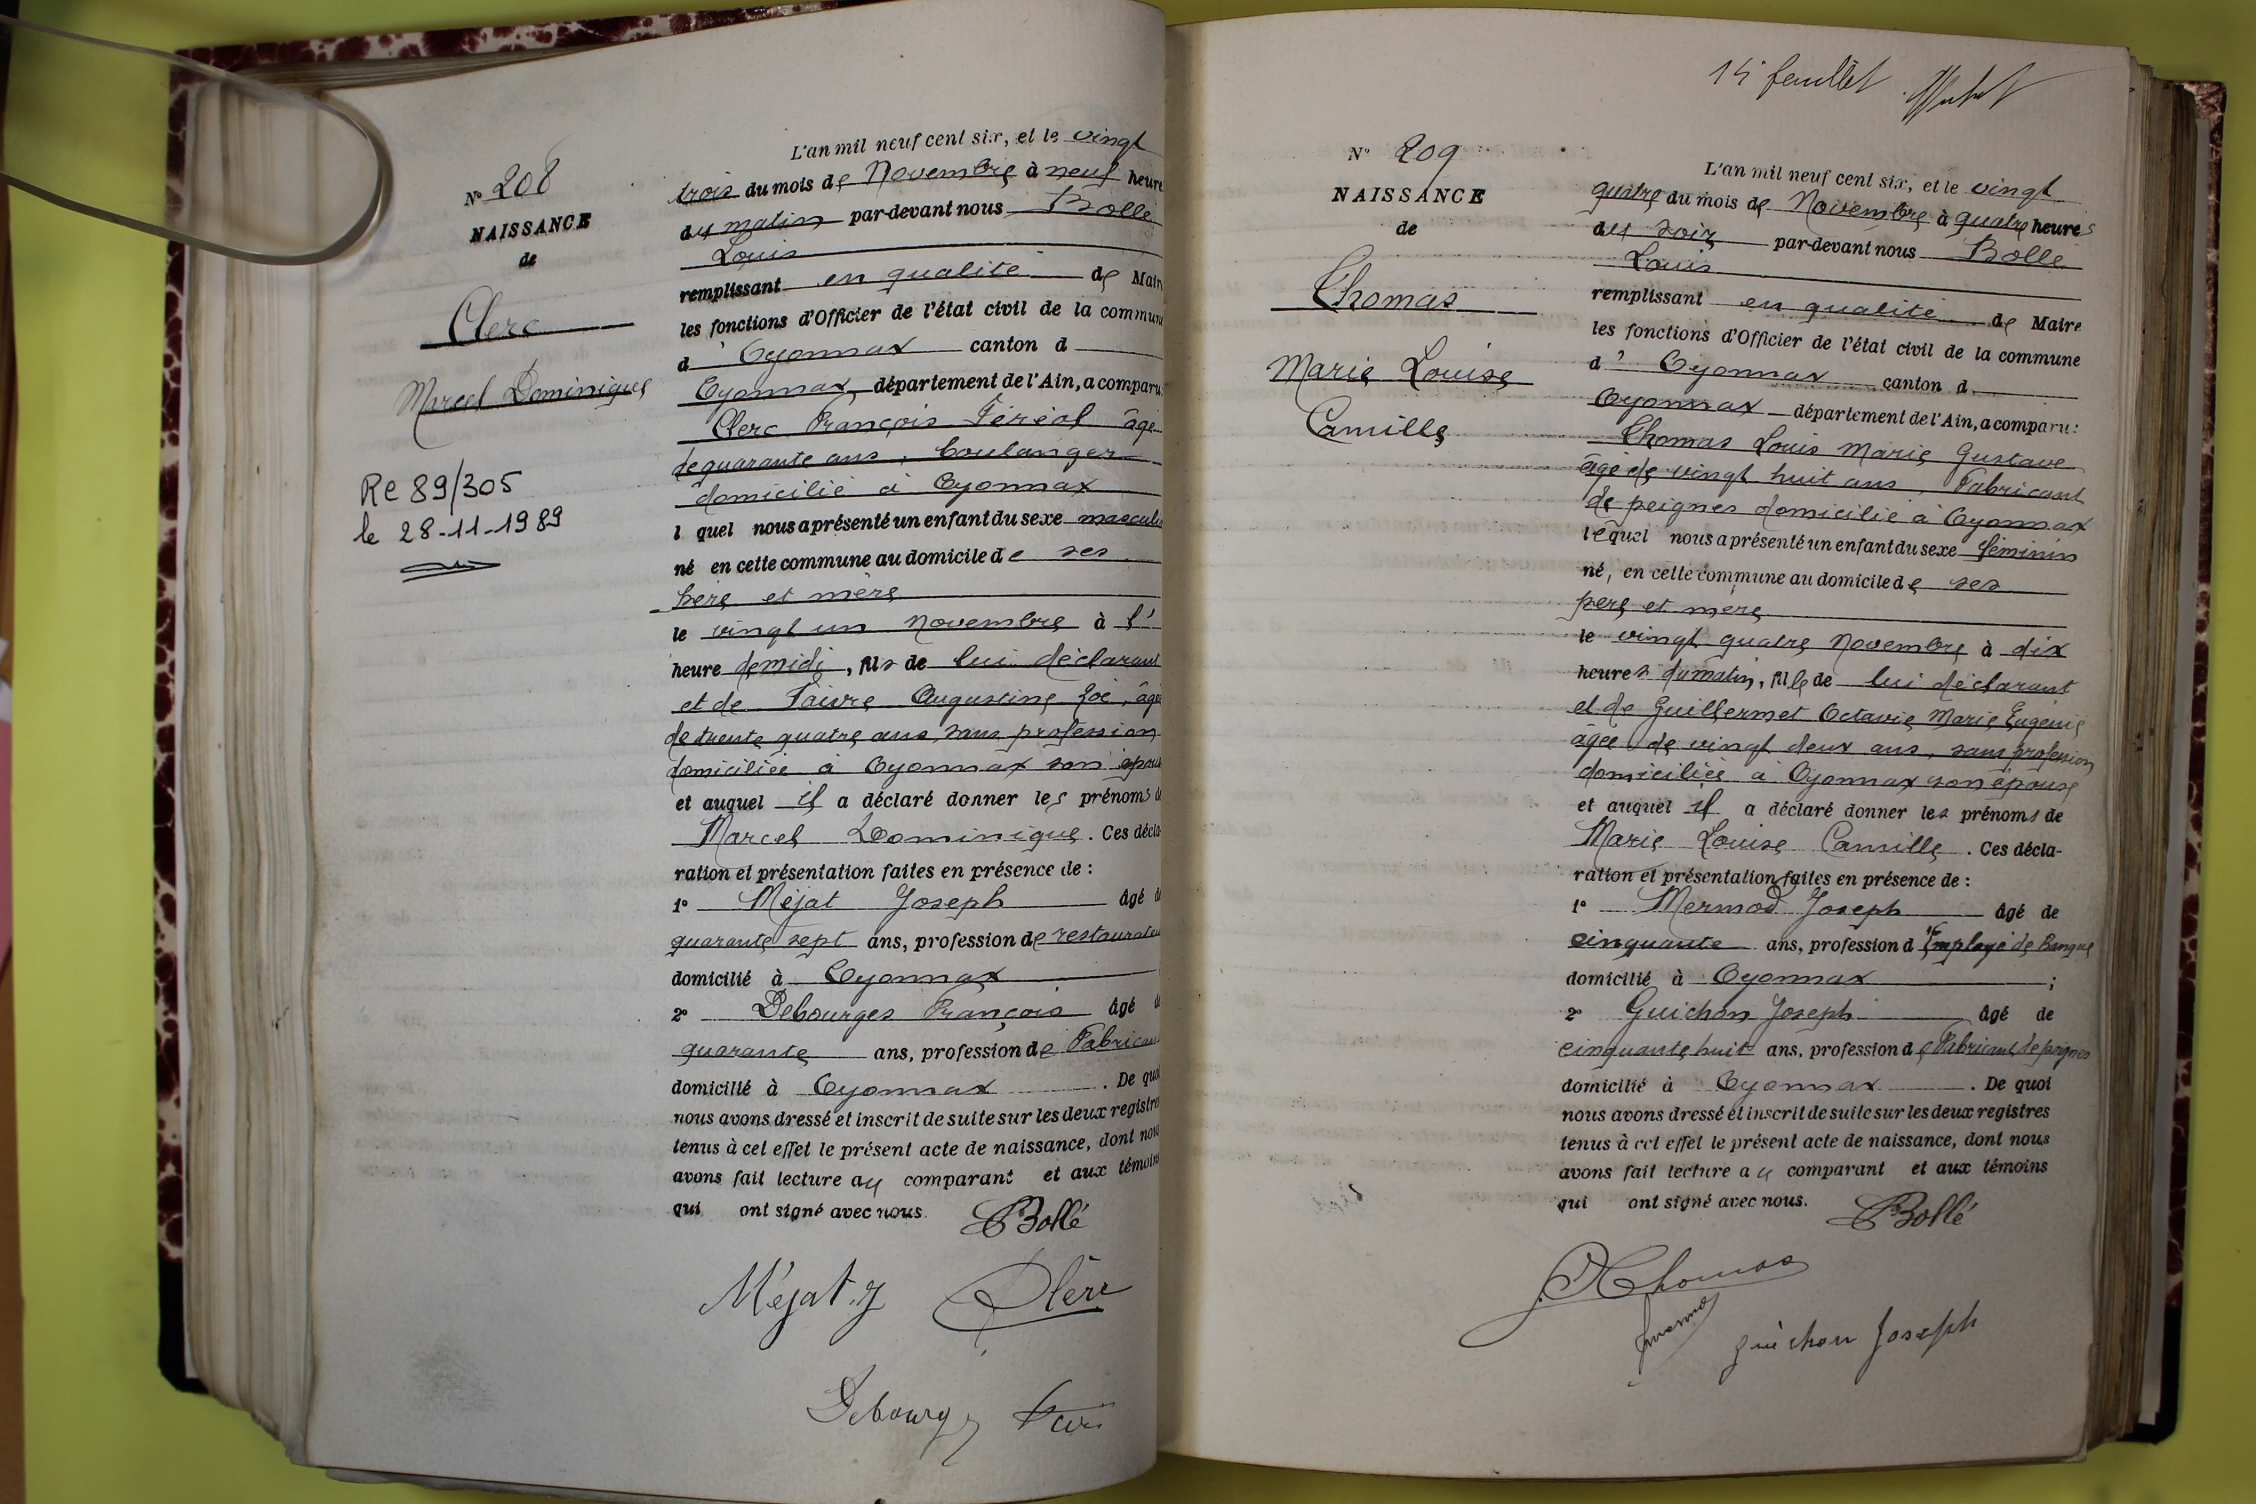 No 208
NAISSANCE
de
Clerc
Marcel Dominique
Re 89/305
le 28-11-1989
L'an mil neuf cent six, et le vingt
trois du mois de Novembre à neuf heure
du matin par-devant nous Bollé
Louis
remplissant en qualité de Mair
les fonctions d'Officier de l'état civil de la commune
d' Oyonnax canton d
Oyonnax, département de l'Ain, a comparu
Clerc François Féréol âgé
de quarante ans, boulanger
domicilié à Oyonnax
l quel nous a présenté un enfant du sexe masculin
né en cette commune au domicile de ses
père et mère
le vingt un Novembre à l'
heure de midi, fils de lui déclarant
et de Faivre Augustine Zoé, âgé
de trente quatre ans, sans profession
domiciliée à Oyonnax son épouse
et auquel il a déclaré donner les prénoms d
Marcel Dominique. Ces décla-
ration et présentation faites en présence de :
1° Méjat Joseph âgé d
quarante sept ans, profession de restaurateu
domicilié à Oyonnax
2° Debourges François âgé d
quarante ans, profession de Fabrican
domicilié à Oyonnax. De quoi
nous avons dressé et inscrit de suite sur les deux registre
tenus à cet effet le présent acte de naissance, dont nous
avons fait lecture au comparant et aux témoins
qui ont signé avec nous.
Bollé
Méjat. J Clerc
Debourg
feuillet
N° 209
NAISSANCE
de
Thomas
Marie Louise
Camille
L'an mil neuf cent six, et le vingt
quatre du mois de Novembre à quatre heures
du soir par-devant nous Bollé
Louis
remplissant en qualité de Maire
les fonctions d'Officier de l'état civil de la commune
d' Oyonnax canton d
Oyonnax département de l'Ain, a comparu :
Thomas Louis Marie Gustave
âgé de vingt huit ans, Fabricant
de peignes domicilié à Oyonnax
lequel nous a présenté un enfant du sexe féminin
né, en cette commune au domicile de ses
père et mère
le vingt quatre Novembre à dix
heures du matin, fille de lui déclarant
et de Guillermet Octavie Marie Eugénie
âgée de vingt deux ans, sans profession
domiciliée à Oyonnax son épouse
et auquel il a déclaré donner les prénoms de
Marie Louise Camille. Ces décla-
ration et présentation faites en présence de :
1° Mermod Joseph âgé de
cinquante ans, profession d'Employé de Banque
domicilié à Oyonnax ;
2° Guichon Joseph âgé de
cinquante huit ans, profession de Fabricant de peignes
domicilié à Oyonnax. De quoi
nous avons dressé et inscrit de suite sur les deux registres
tenus à cet effet le présent acte de naissance, dont nous
avons fait lecture au comparant et aux témoins
qui ont signé avec nous.
Bollé
Thomas
guichon Joseph